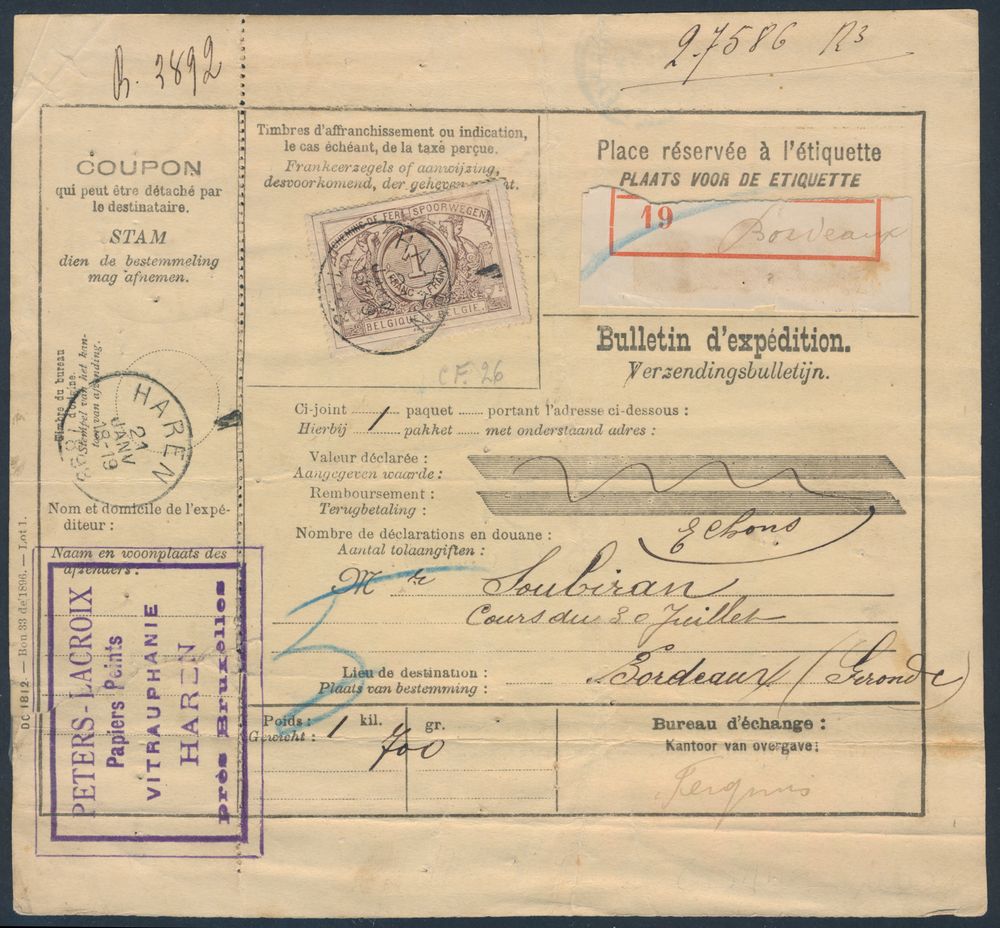 R. 3892
27586 R3
COUPON
qui peut être détaché par
le destinataire.
STAM
dien de bestemmeling
mag afnemen.
Timbres d'affranchissement ou indication,
le cas échéant, de la taxe perçue.
Frankeerzegels of aanwijzing,
desvoorkomend, der geheven
CHEMINS DE FER SPOORWEGEN
1
FRANC FRANK
BELGIQUE BELGIE
HA
CF. 26
Place réservée à l'étiquette
PLAATS VOOR DE ETIQUETTE
19
Bordeaux
Bulletin d'expédition.
Verzendingsbulletijn.
Timbre du bureau
d'origine.
Stempel van het kan-
toor van afzending.
HAREN
21
JANV
18-19
Ci-joint 1 paquet portant l'adresse ci-dessous :
Hierbij pakket met onderstaand adres :
Valeur déclarée :
Aangegeven waarde :
Remboursement :
Terugbetaling :
Nombre de déclarations en douane :
Aantal tolaangiften :
Echons
Mr Soubiran
Cours du 30 Juillet
Lieu de destination :
Plaats van bestemming :
Bordeaux (Gironde)
Nom et domicile de l'expé-
diteur :
Naam en woonplaats des
afzenders :
PETERS-LACROIX
Papiers Peints
VITRAUPHANIE
HAREN
près Bruxelles
DC 1812 — Bon 33 de 1896. — Lot 1.
Poids : 1 kil. 700 gr.
Gewicht :
Bureau d'échange :
Kantoor van overgave :